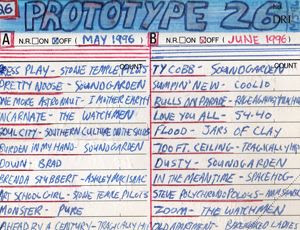 26 PROTOTYPE 26
A N.R. ON OFF (MAY 1996)
B N.R. ON OFF (JUNE 1996)
PRESS PLAY - STONE TEMPLE PILOTS
PRETTY NOOSE - SOUNDGARDEN
ONE MORE ASTRONAUT - I MOTHER EARTH
INCARNATE - THE WATCHMEN
SOUL CITY - SOUTHERN CULTURE ON THE SKIDS
BURDEN IN MY HAND - SOUNDGARDEN
DOWN - BRAD
BRENDA STUBBERT - ASHLEY MACISAAC
ART SCHOOL GIRL - STONE TEMPLE PILOTS
MONSTER - PURE
AHEAD BY A CENTURY - TRAGICALLY HIP
TY COBB - SOUNDGARDEN
SUMPIN' NEW - COOLIO
BULLS ON PARADE - RAGE AGAINST
LOVE YOU ALL - 54-40
FLOOD - JARS OF CLAY
700 FT. CEILING - TRAGICALLY HIP
DUSTY - SOUNDGARDEN
IN THE MEANTIME - SPACEHOG
STEVE POLYCHRONOPOLOUS -
ZOOM - THE WATCHMEN
APARTMENT - BARENAKED LADIES